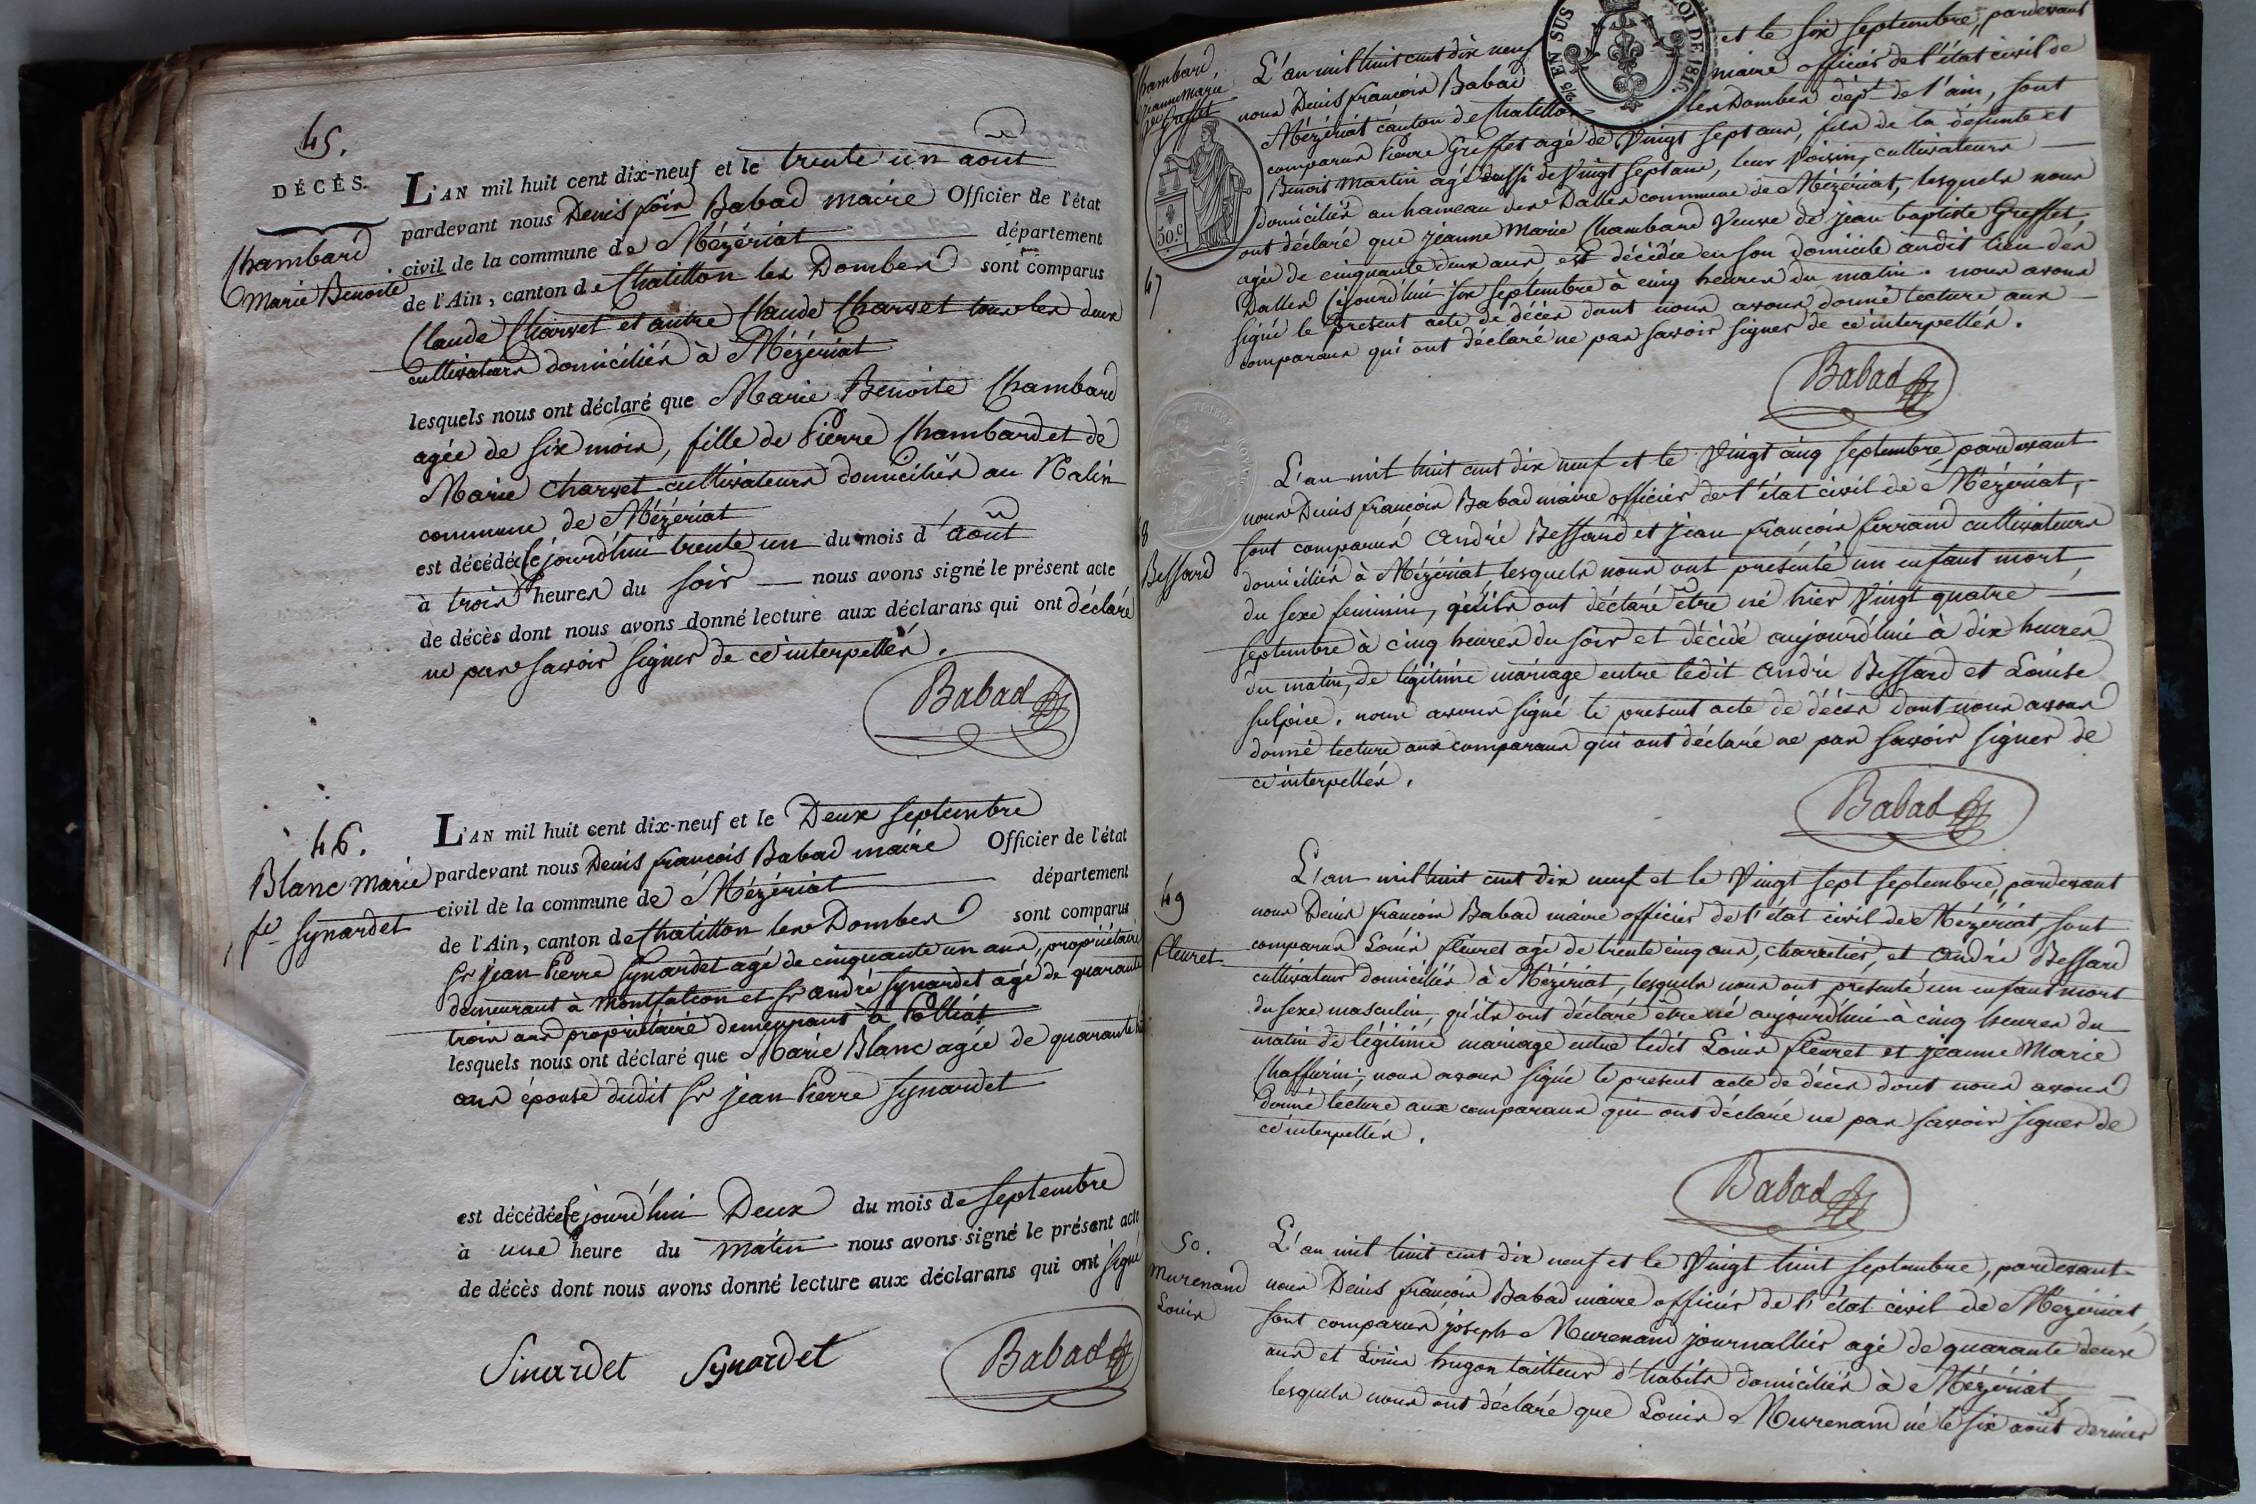 45.
DÉCÈS.
Chambard
Marie Benoite
L'AN mil huit cent dix-neuf et le trente un aout
pardevant nous Denis fçois Babad maire Officier de l'état
civil de la commune de Mézériat département
de l'Ain, canton de Chatillon les Dombes sont comparus
Claude Charvet et autre Claude Charvet tous les deux
cultivateurs domiciliés à Mézériat
lesquels nous ont déclaré que Marie Benoite Chambard
agée de six mois, fille de Pierre Chambard et de
Marie Charvet cultivateurs domiciliés au
commune de Mézériat
est décédée Cejourd'hui trente un du mois d'août
à trois heures du soir nous avons signé le présent acte
de décès dont nous avons donné lecture aux déclarans qui ont déclaré
ne pas savoir signer de ce interpellés.
Babad
46.
Blanc Marie
fe Synardet
L'AN mil huit cent dix-neuf et le Deux septembre
pardevant nous Denis françois Babad maire Officier de l'état
civil de la commune de Mézériat département
de l'Ain, canton de Chatillon les Dombes sont comparus
Sr jean Pierre Synardet agé de cinquante un ans, propriétaire
demeurant à Montfalcon et Sr andré Synardet agé de quarante
trois ans propriétaire demeurant à Polliat
lesquels nous ont déclaré que Marie Blanc agée de quarante
ans épouse dudit Sr jean Pierre Synardet
est décédée Cejourd'hui Deux du mois de septembre
à une heure du matin nous avons signé le présent acte
de décès dont nous avons donné lecture aux déclarans qui ont signé
Sinardet Synardet Babad
25 EN SUS
LOI DE 1816.
50.c
TIMBRE ROYAL
Chambard,
jeanne Marie
ve Greffet
47
L'an mil huit cent dix neuf et le six septembre, pardevant
nous Denis françois Babad maire officier de l'état civil de
Mézériat canton de Chatillon les Dombes dépt de l'ain, sont
comparus Pierre Greffet agé de Vingt sept ans, fils de la défunte et
Benoit Martin agé aussi de Vingt sept ans, leur Voisin, cultivateurs
domiciliés au hameau des Dalles commune de Mézériat, lesquels nous
ont déclaré que jeanne Marie Chambard Veuve de jean baptiste Greffet,
agée de cinquante deux ans, est décédée en son domicile audit lieu des
Dalles Cejourd'hui six septembre à cinq heures du matin. nous avons
signé le present acte de décès dont nous avons donné lecture aux
comparans qui ont déclaré ne pas savoir signer de ce interpellés.
Babad
48
Bessard
L'an mil huit cent dix neuf et le Vingt cinq septembre, pardevant
nous Denis françois Babad maire officier de l'état civil de Mézériat,
sont comparus André Bessard et jean françois ferrand cultivateurs
domiciliés à Mézériat, lesquels nous ont présenté un enfant mort,
du sexe feminin, qu'ils ont déclaré être né hier Vingt quatre
septembre à cinq heures du soir et décédé aujourd'hui à dix heures
du matin, de légitime mariage entre ledit André Bessard et Louise
sulpice. nous avons signé le present acte de décès dont nous avons
donné lecture aux comparans qui ont déclaré ne pas savoir signer de
ce interpellés.
Babad
49
fleuret
L'an mil huit cent dix neuf et le Vingt sept septembre, pardevant
nous Denis françois Babad maire officier de l'état civil de Mézériat, sont
comparus Louis fleuret agé de trente cinq ans, charretier, et André Bessard
cultivateur domiciliés à Mézériat, lesquels nous ont presenté un enfant mort
du sexe masculin, qu'ils ont déclaré être né aujourd'hui à cinq heures du
matin de légitime mariage entre ledit Louis fleuret et jeanne Marie
Chaffurin, nous avons signé le present acte de décès dont nous avons
donné lecture aux comparans qui ont déclaré ne pas savoir signer de
ce interpellés.
Babad
50.
Murenand
Louis
L'an mil huit cent dix neuf et le Vingt huit septembre, pardevant
nous Denis françois Babad maire officier de l'état civil de Mézériat
sont comparus joseph Murenand journallier agé de quarante deux
ans et Louis hugon tailleur d'habits domiciliés à Mézériat,
lesquels nous ont déclaré que Louis Murenand né le six août dernier